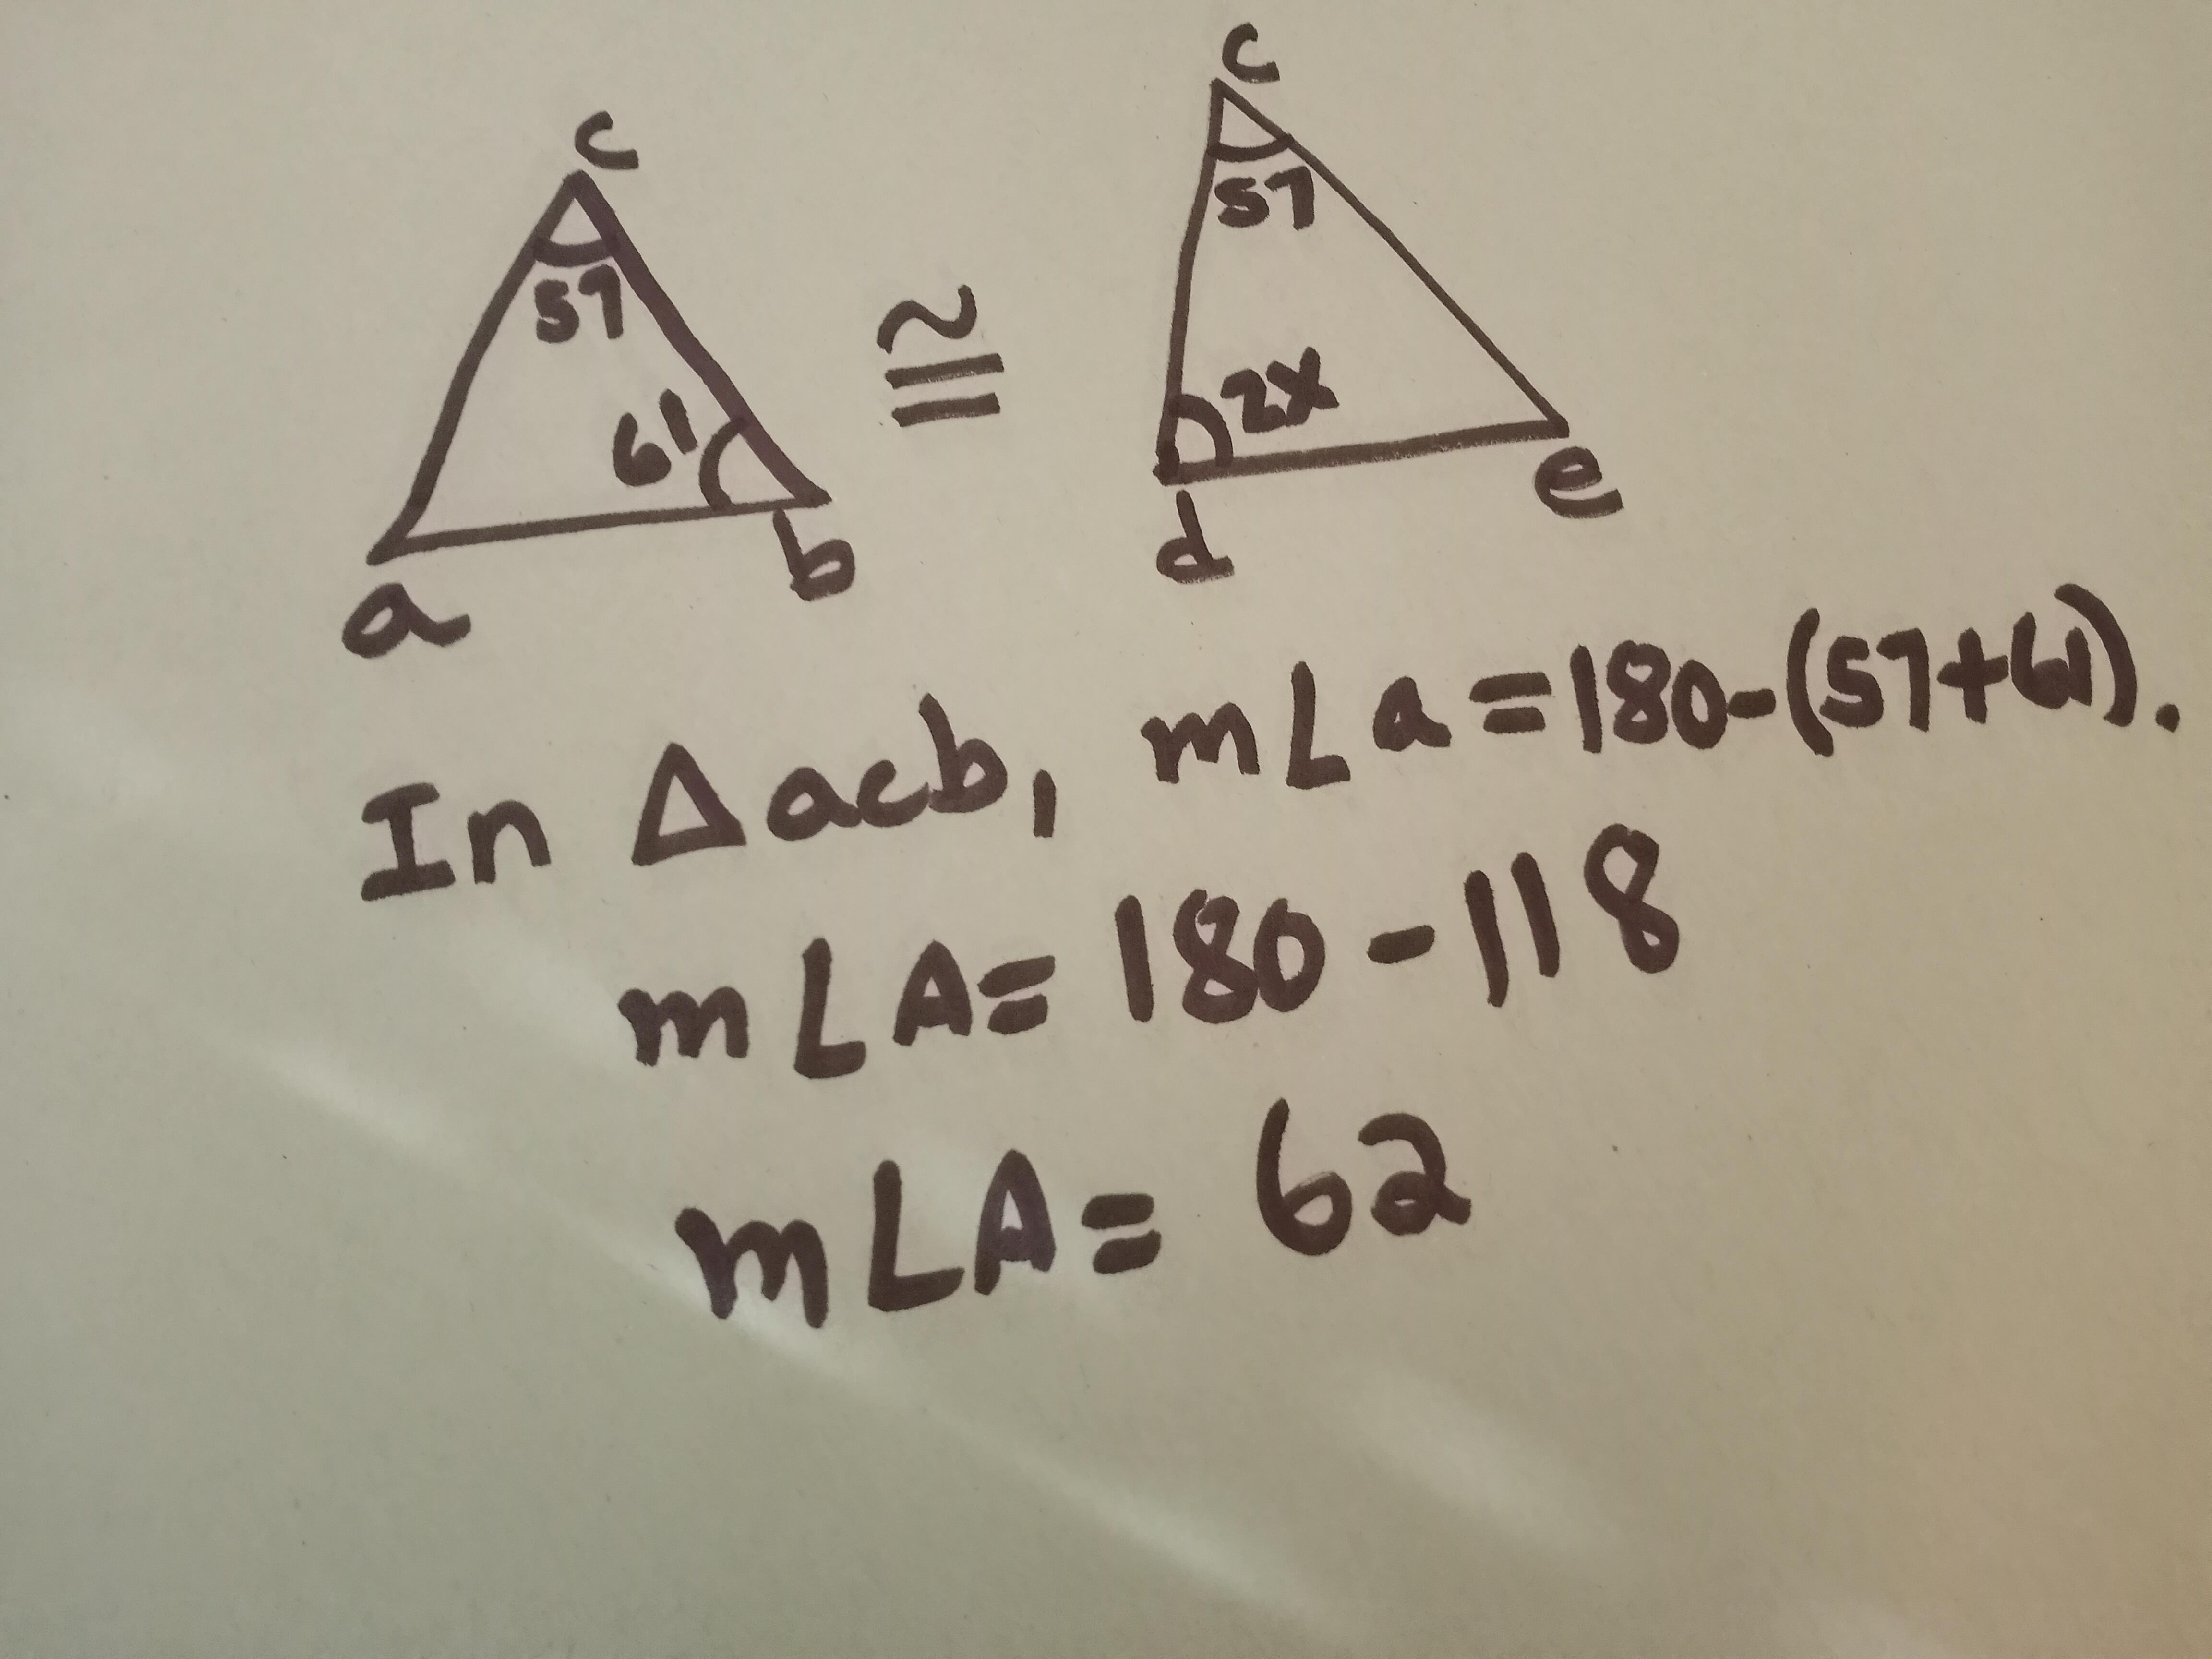 c
57
61
a
b
≅
c
57
2x
d
e
In Δacb, m∠a=180-(57+61).
m∠A= 180-118
m∠A= 62